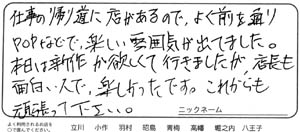 仕事の帰り道に店があるので、よく前を通り
POPなどで、楽しい雰囲気が出てました。
本日は新作が欲しくて行きましたが店長も
面白い人で、楽しかったです。これからも
頑張って下さい。
ニックネーム
よく利用されるお店を
○で選んでください。
立川 小作 羽村 昭島 青梅 高幡 堀之内 八王子